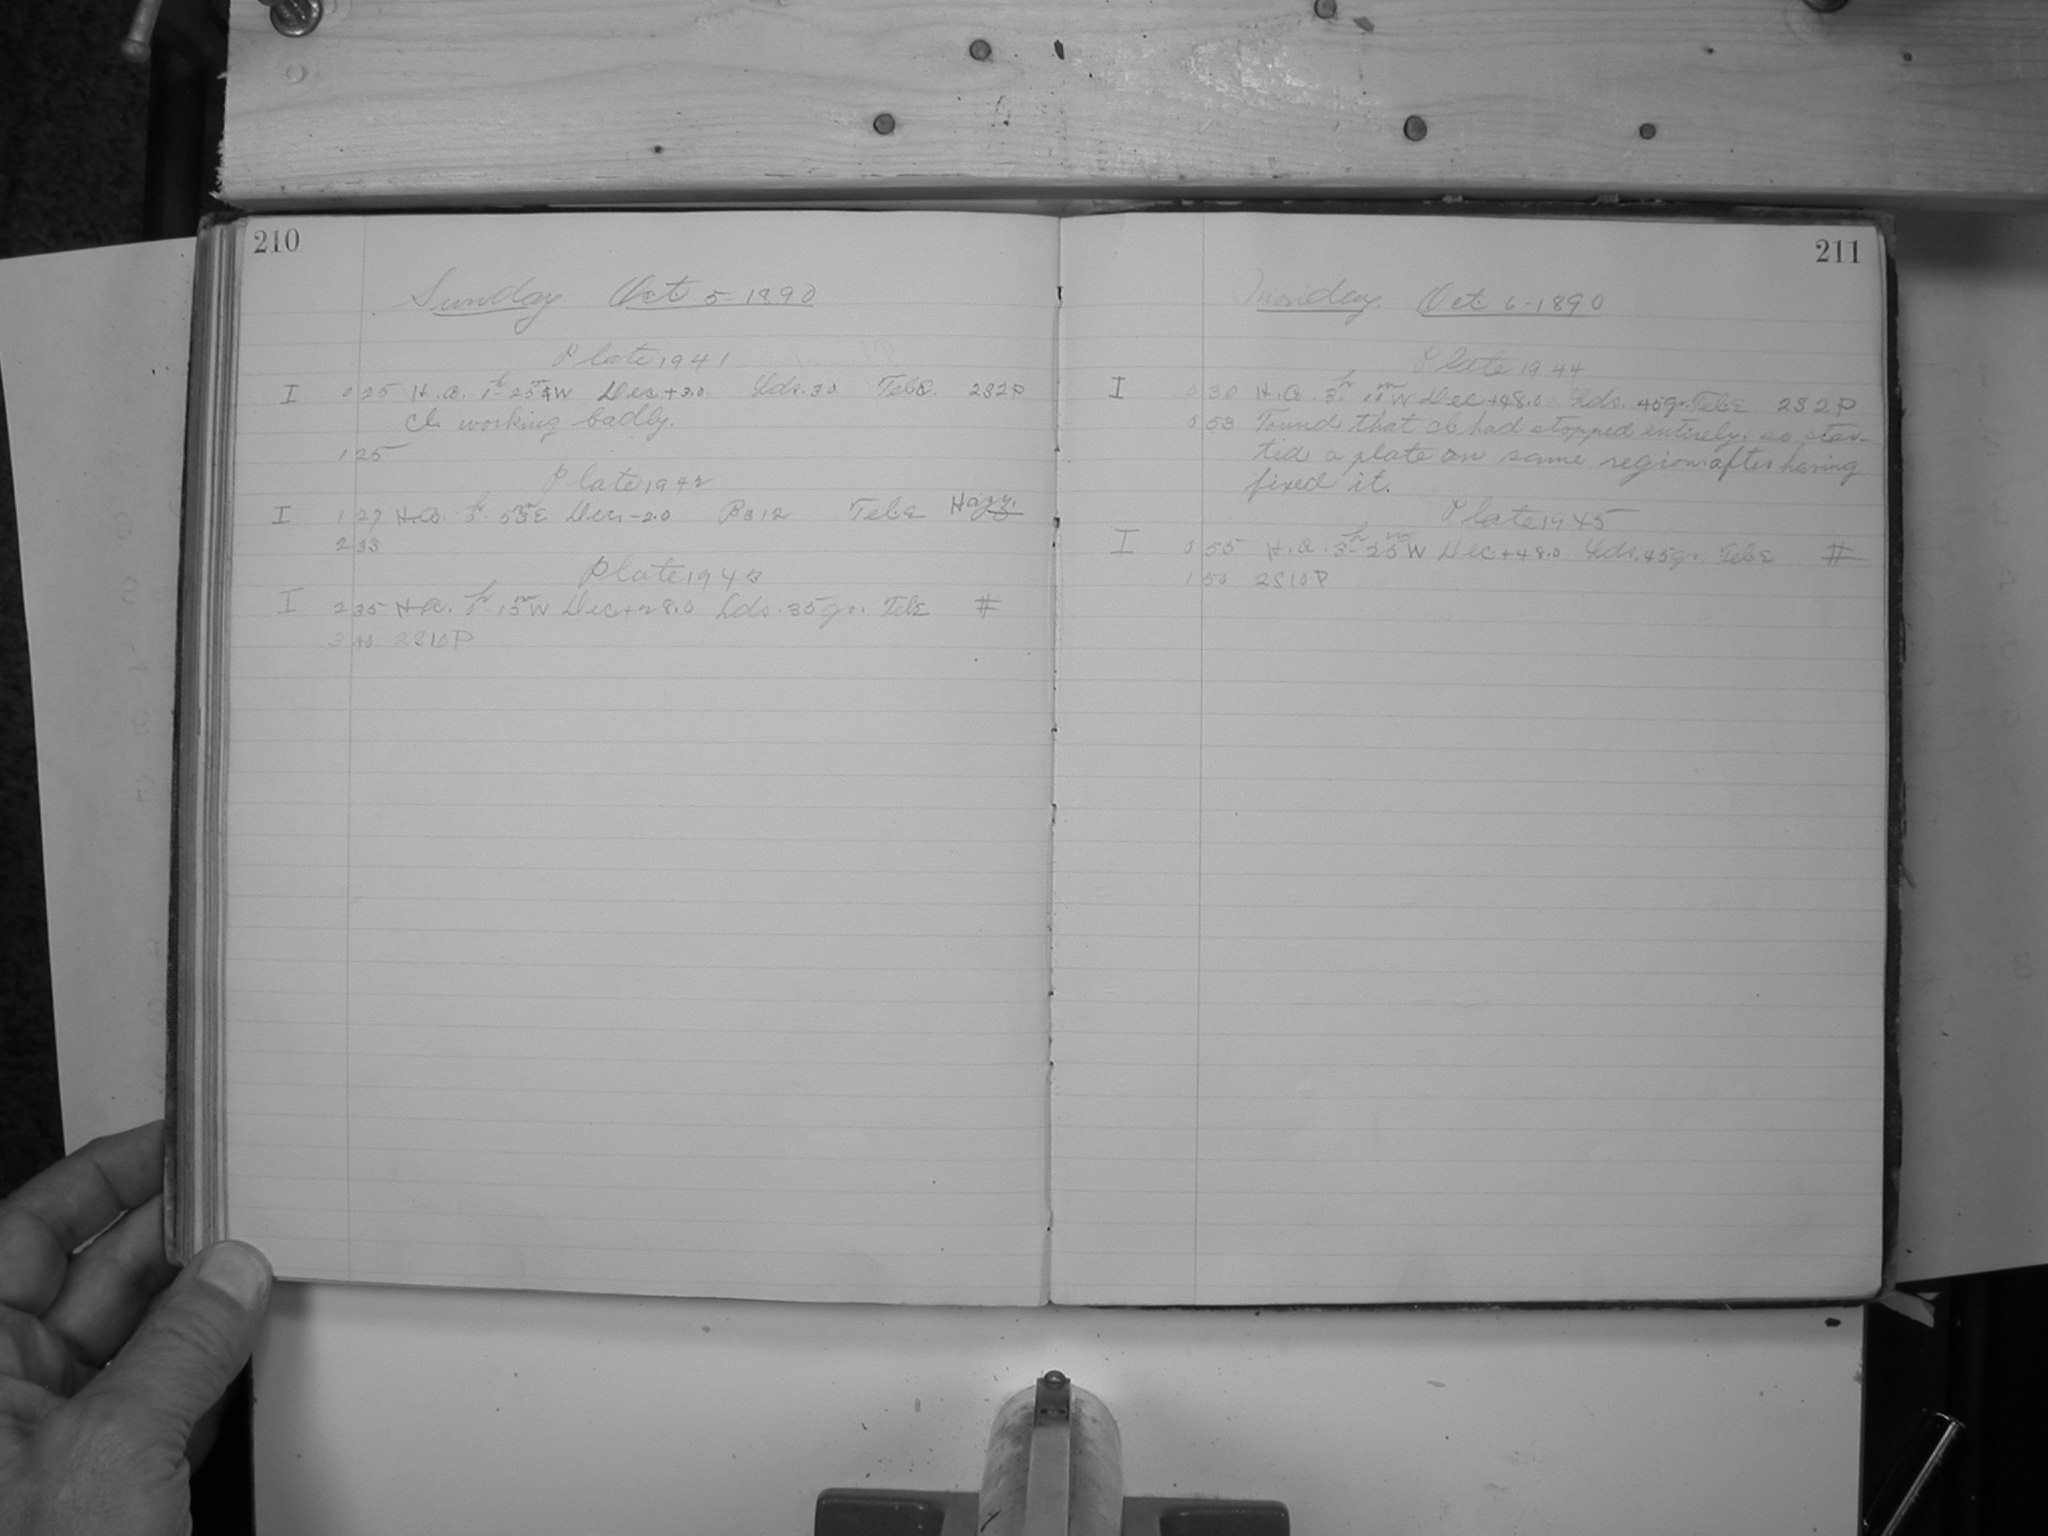 210
Sunday Oct 5-1890
Plate 1941
I 0 25 H.A. 1h 25m W Dec +3.0 Lds. 30 Tel.E. 2S2P
Cl. working badly.
1 25
Plate 1942
I 1 27 H.A. 0h 55m E Dec. -2.0 Tel.E Hazy.
2 33
Plate 1943
I 2 35 H.A. 0h 15m W Dec +28.0 Lds. 35gr. Tel.E #
3 40 2S10P
211
Monday. Oct. 6-1890
Plate 1944
I 0 30 H.A. 3h W Dec +48.0 Lds. 45gr. Tel.E 2S2P
0 53 Found that cl. had stopped entirely, so star-
ted a plate on same region after having
fixed it.
Plate 1945
I 0 55 H.A. 3h 25m W Dec. +48.0 Lds. 45gr. Tel.E #
1 50 2S10P